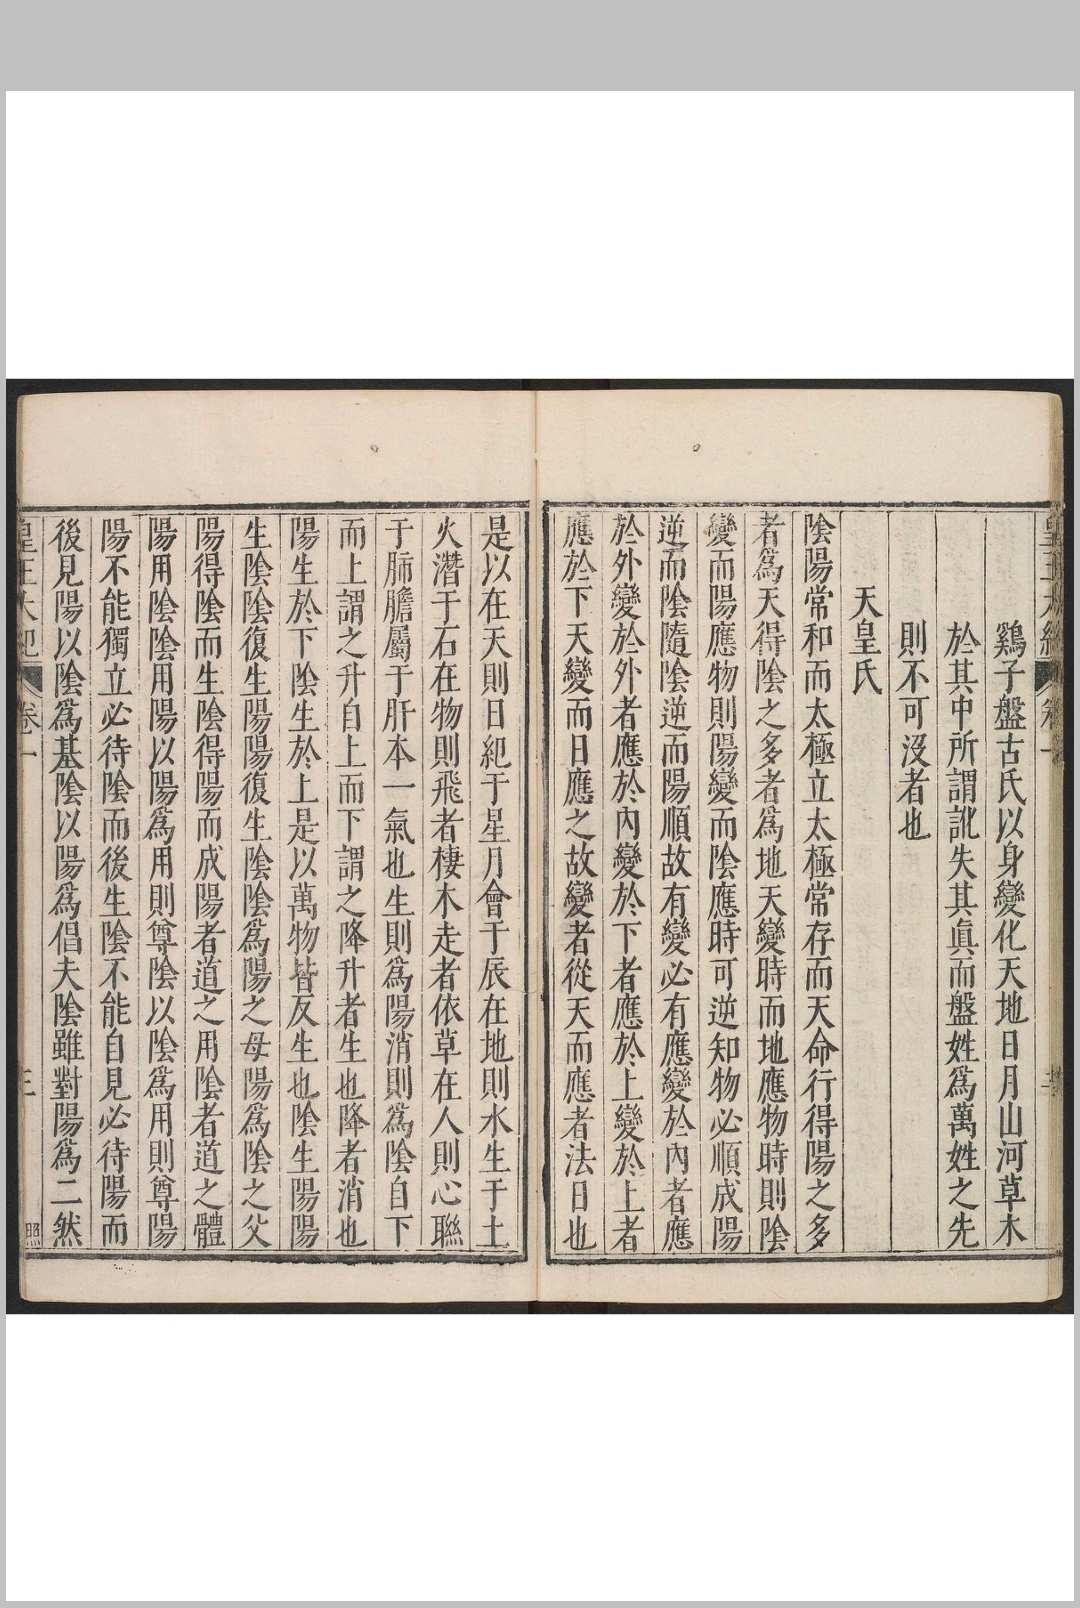 鷄子盤古氏以身變化天地日月山河草木
於其中所謂訛失其眞而盤姓爲萬姓之先
則不可沒者也
天皇氏
陰陽常和而太極立太極常存而天命行得陽之多
者爲天得陰之多者爲地天變時而地應物時則陰
變而陽應物則陽變而陰應時可逆知物必順成陽
逆而陰隨陰逆而陽順故有變必有應變於內者應
於外變於外者應於內變於下者應於上變於上者
應於下天變而日應之故變者從天而應者法日也
是以在天則日紀于星月會于辰在地則水生于土
火潛于石在物則飛者棲木走者依草在人則心聯
于肺膽屬于肝本一氣也生則爲陽消則爲陰自下
而上謂之升自上而下謂之降升者生也降者消也
陽生於下陰生於上是以萬物皆反生也陰生陽陽
生陰陰復生陽陽復生陰陰爲陽之母陽爲陰之父
陽得陰而生陰得陽而成陽者道之用陰者道之體
陽用陰陰用陽以陽爲用則尊陰以陰爲用則尊陽
陽不能獨立必待陰而後生陰不能自見必待陽而
後見陽以陰爲基陰以陽爲倡夫陰雖對陽爲二然
皇王大紀
卷一
三
照